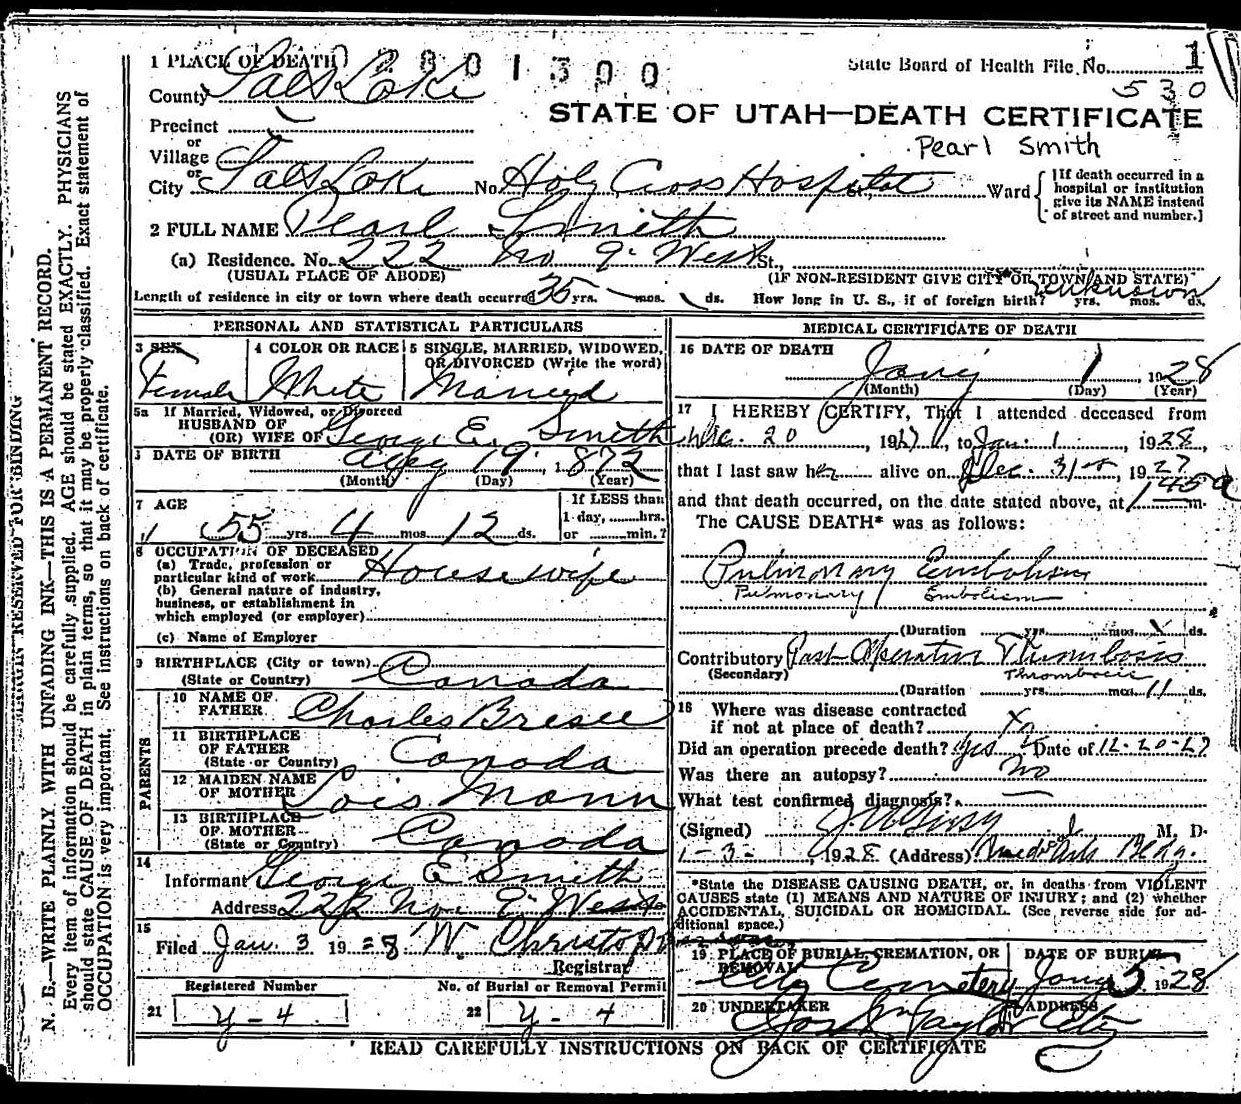 1 PLACE OF DEATH 0 2 8 0 1 3 0 0
State Board of Health File No. 1
530
County Salt Lake
STATE OF UTAH—DEATH CERTIFICATE
Precinct
or
Village
Pearl Smith
or
City Salt Lake No. Holy Cross Hospital St., Ward
[If death occurred in a hospital or institution give its NAME instead of street and number.]
2 FULL NAME Pearl Smith
(a) Residence. No. 222 No 9 West St.,
(USUAL PLACE OF ABODE) (IF NON-RESIDENT GIVE CITY OR TOWN AND STATE)
Length of residence in city or town where death occurred 35 yrs. mos. ds. How long in U. S., if of foreign birth? unknown yrs. mos. ds.
PERSONAL AND STATISTICAL PARTICULARS
3 SEX Female
4 COLOR OR RACE White
5 SINGLE, MARRIED, WIDOWED, OR DIVORCED (Write the word) Married
5a If Married, Widowed, or Divorced
HUSBAND OF
(OR) WIFE OF George E. Smith
DATE OF BIRTH Aug 19, 1872
(Month) (Day) (Year)
7 AGE
55 yrs. 4 mos. 12 ds.
If LESS than
1 day, hrs.
or min.?
8 OCCUPATION OF DECEASED
(a) Trade, profession or
particular kind of work Housewife
(b) General nature of industry,
business, or establishment in
which employed (or employer)
(c) Name of Employer
9 BIRTHPLACE (City or town)
(State or Country) Canada
PARENTS
10 NAME OF
FATHER Charles Bresee
11 BIRTHPLACE
OF FATHER
(State or Country) Canada
12 MAIDEN NAME
OF MOTHER Lois Mann
13 BIRTHPLACE
OF MOTHER
(State or Country) Canada
14
Informant George E Smith
Address 222 No. 9 West
15
Filed Jan. 3 1928 W. Christopherson
Registrar
Registered Number
21 Y-4
No. of Burial or Removal Permit
22 Y-4
MEDICAL CERTIFICATE OF DEATH
16 DATE OF DEATH
Jany 1, 1928
(Month) (Day) (Year)
17 I HEREBY CERTIFY, That I attended deceased from
Dec. 20, 1927, to Jan. 1, 1928,
that I last saw her alive on Dec. 31, 1927
and that death occurred, on the date stated above, at 1 45 a m.
The CAUSE DEATH* was as follows:
Pulmonary Embolism
Pulmonary Embolism
(Duration yrs. mos. ds.
Contributory Post-Operative Thrombosis
(Secondary) Thrombosis
(Duration yrs. mos. 11 ds.
18 Where was disease contracted
if not at place of death?
Did an operation precede death? Yes Date of 12-20-27
Was there an autopsy? No
What test confirmed diagnosis?
(Signed) M. D.
1-3-, 1928 (Address) Med. Arts Bldg.
*State the DISEASE CAUSING DEATH, or, in deaths from VIOLENT
CAUSES state (1) MEANS AND NATURE OF INJURY; and (2) whether
ACCIDENTAL, SUICIDAL OR HOMICIDAL. (See reverse side for additional space.)
19 PLACE OF BURIAL, CREMATION, OR REMOVAL
City Cemetery
DATE OF BURIAL
Jany 5 1928
20 UNDERTAKER Jos. Wm Taylor
ADDRESS City
READ CAREFULLY INSTRUCTIONS ON BACK OF CERTIFICATE
MARGIN RESERVED FOR BINDING
N. B.—WRITE PLAINLY WITH UNFADING INK—THIS IS A PERMANENT RECORD.
Every item of information should be carefully supplied. AGE should be stated EXACTLY. PHYSICIANS
should state CAUSE OF DEATH in plain terms, so that it may be properly classified. Exact statement of
OCCUPATION is very important. See instructions on back of certificate.